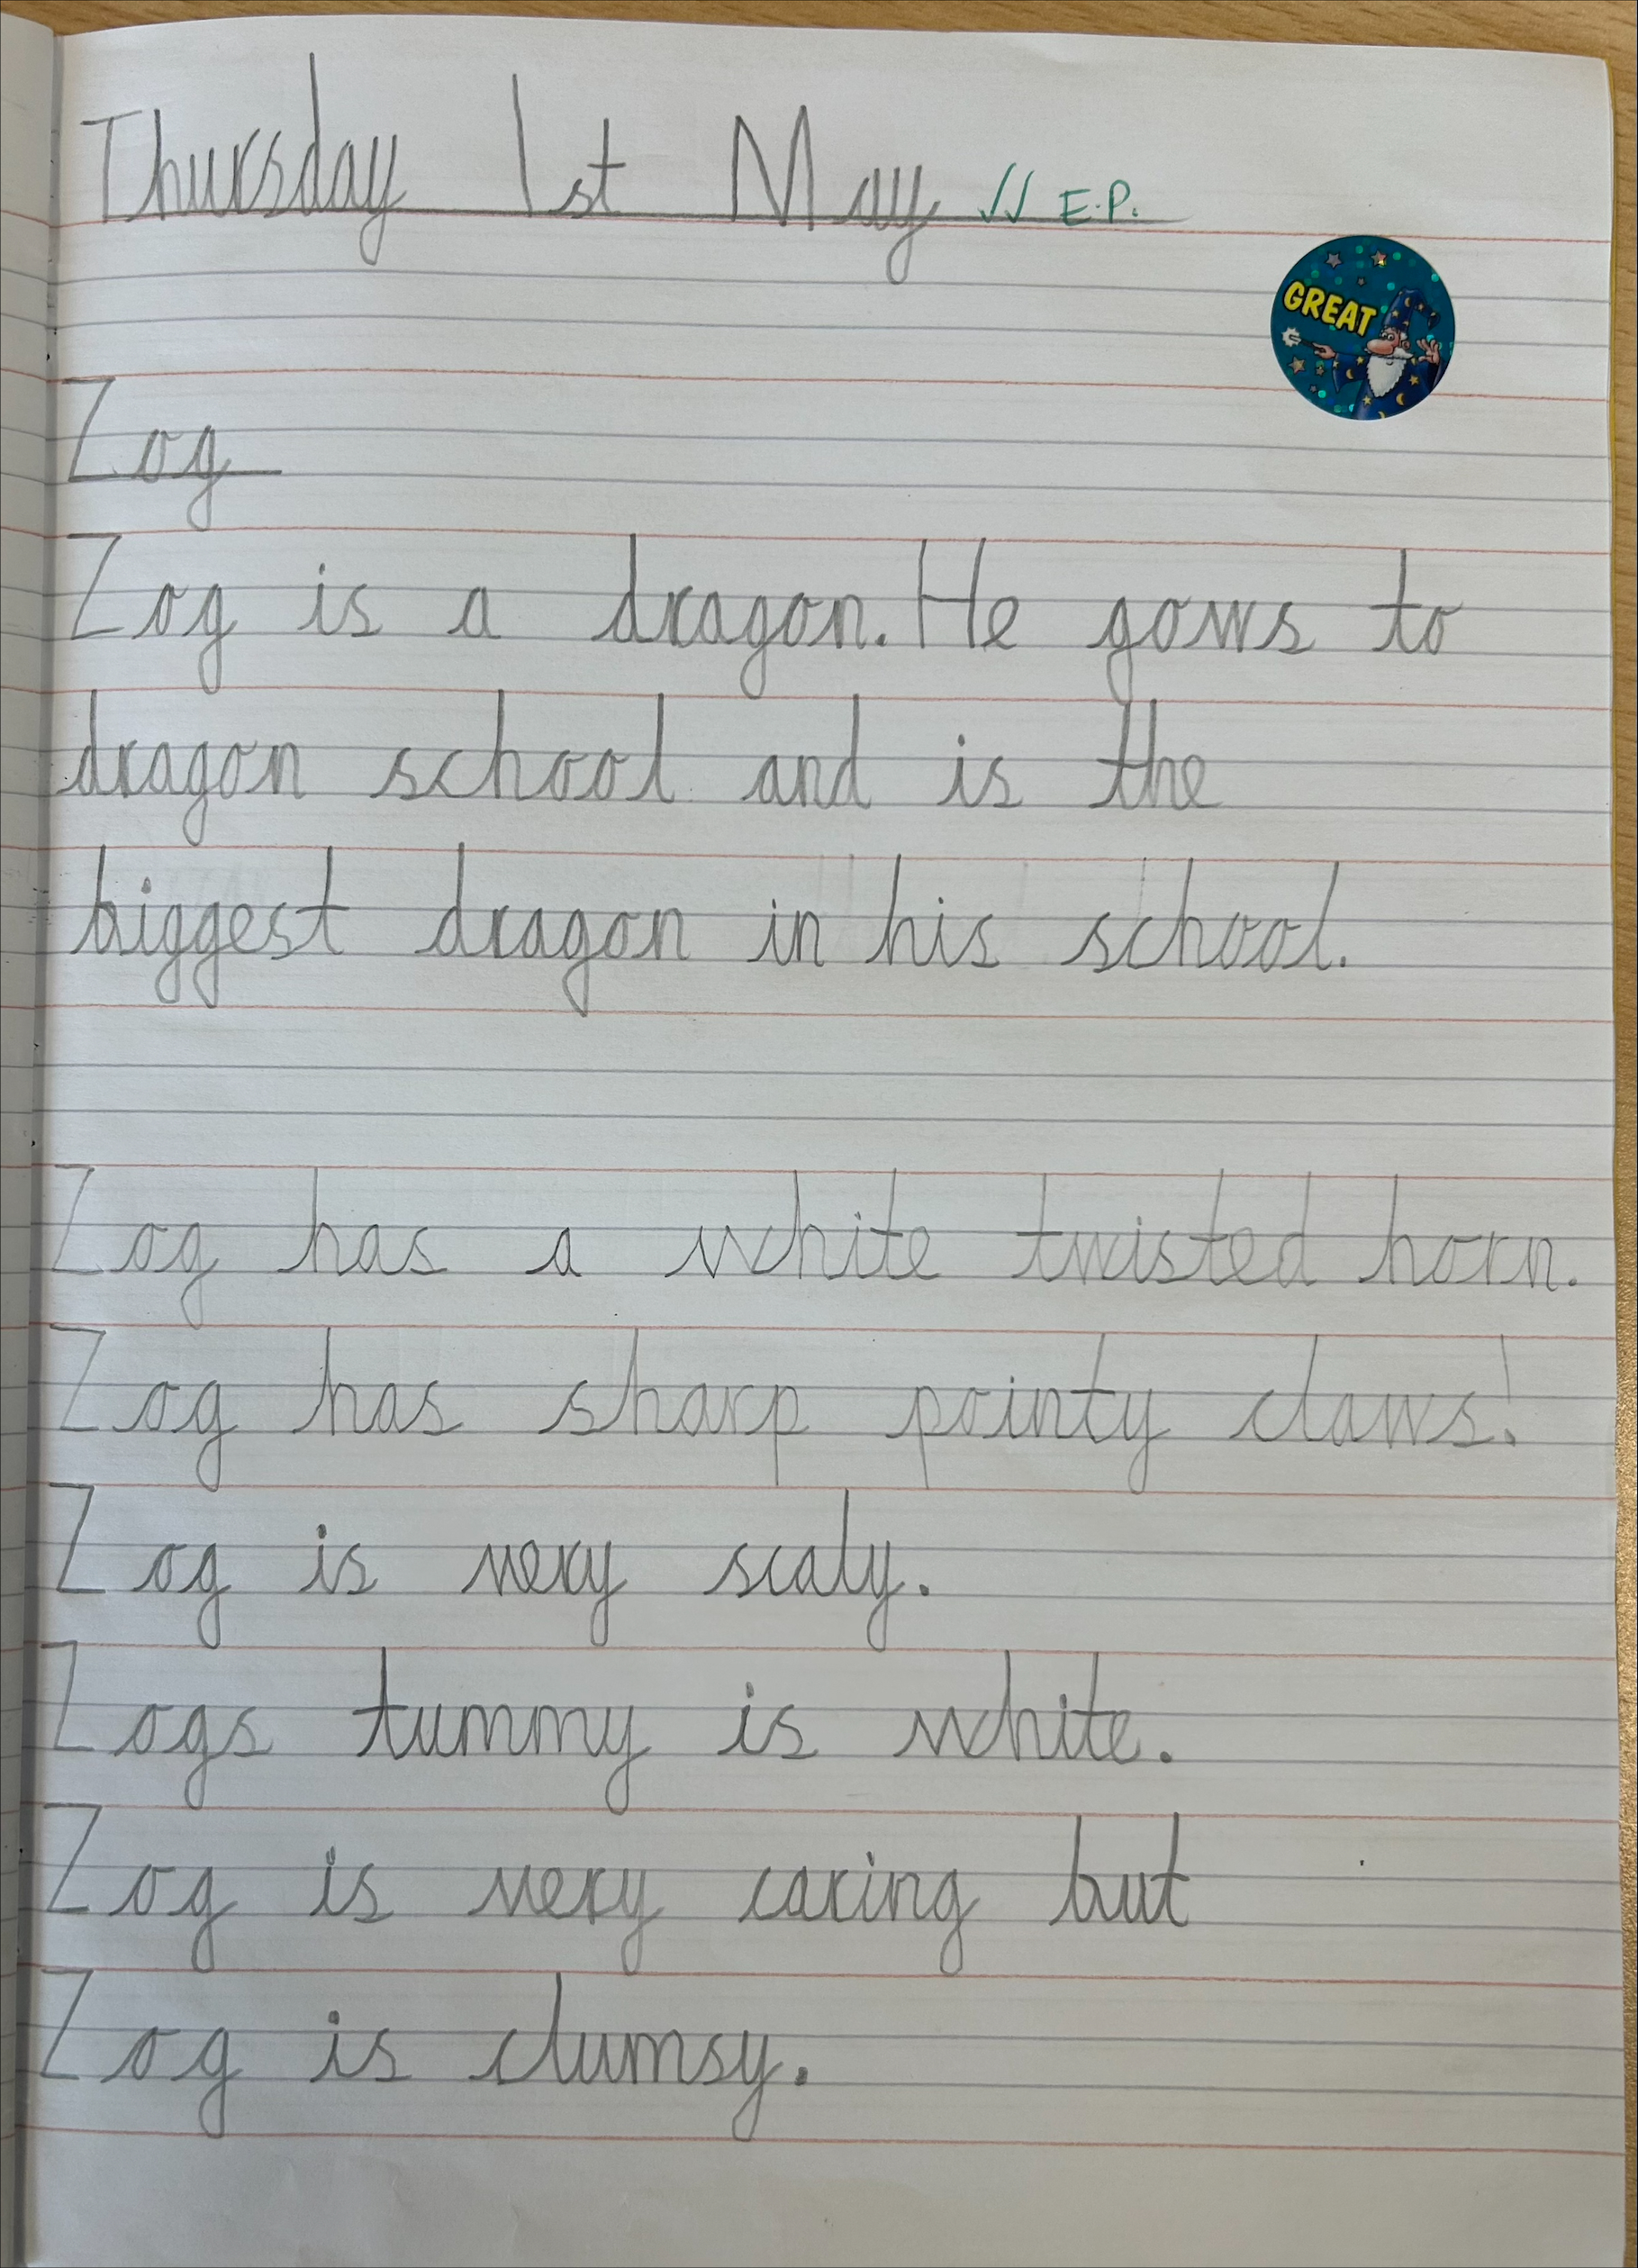 Thursday 1st May ✓✓ E.P.
GREAT
Zog
Zog is a dragon. He gows to
dragon school and is the
biggest dragon in his school.
Zog has a white twisted horn.
Zog has sharp pointy claws!
Zog is very scaly.
Zogs tummy is white.
Zog is very caring but
Zog is clumsy.